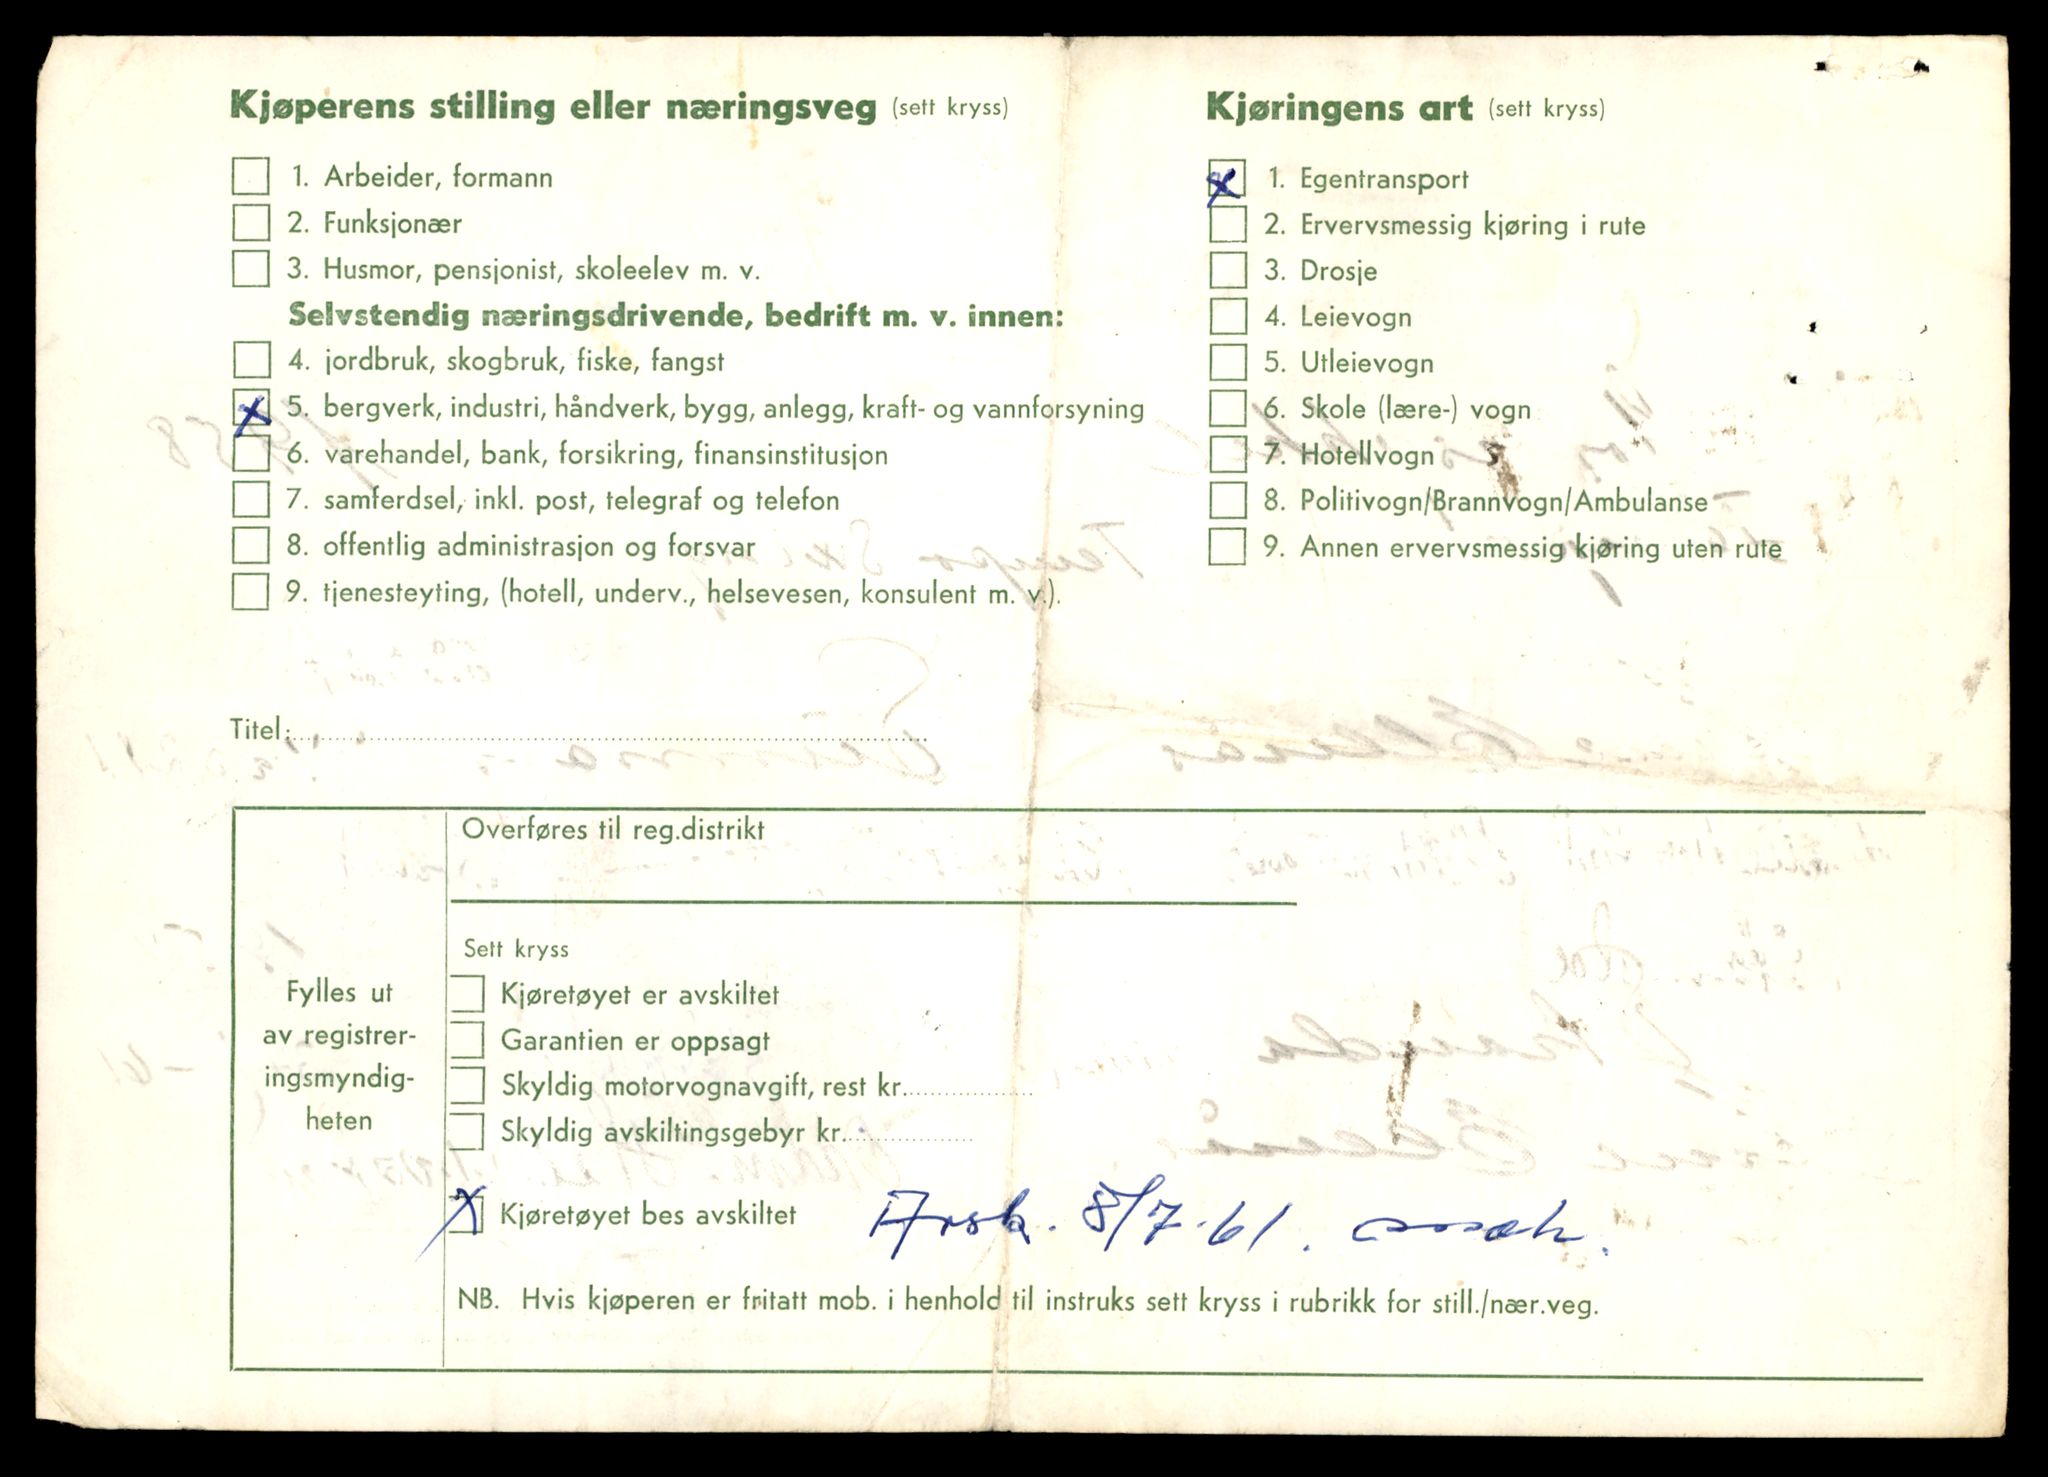 Kjøperens stilling eller næringsveg (sett kryss)
1. Arbeider, formann
2. Funksjonær
3. Husmor, pensjonist, skoleelev m. v.
Selvstendig næringsdrivende, bedrift m. v. innen:
4. jordbruk, skogbruk, fiske, fangst
X 5. bergverk, industri, håndverk, bygg, anlegg, kraft- og vannforsyning
6. varehandel, bank, forsikring, finansinstitusjon
7. samferdsel, inkl. post, telegraf og telefon
8. offentlig administrasjon og forsvar
9. tjenesteyting, (hotell, underv., helsevesen, konsulent m. v.).
Titel:
Kjøringens art (sett kryss)
X 1. Egentransport
2. Ervervsmessig kjøring i rute
3. Drosje
4. Leievogn
5. Utleievogn
6. Skole (lære-) vogn
7. Hotellvogn
8. Politivogn/Brannvogn/Ambulanse
9. Annen ervervsmessig kjøring uten rute
Fylles ut
av registrer-
ingsmyndig-
heten
Overføres til reg.distrikt
Sett kryss
Kjøretøyet er avskiltet
Garantien er oppsagt
Skyldig motorvognavgift, rest kr.
Skyldig avskiltingsgebyr kr.
X Kjøretøyet bes avskiltet Avsk. 8/7-61.
NB. Hvis kjøperen er fritatt mob. i henhold til instruks sett kryss i rubrikk for still./nær.veg.